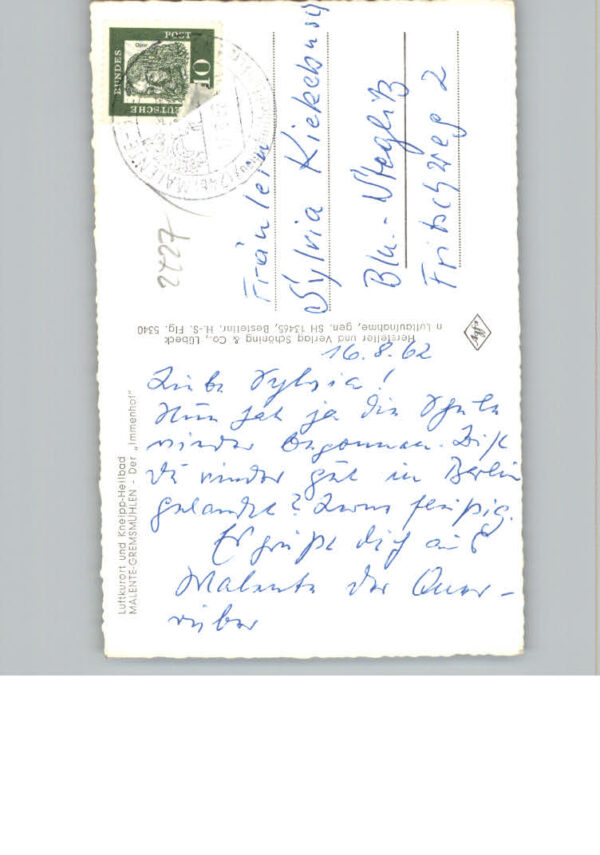 Luftkurort und Kneipp-Heilbad
MALENTE-GREMSMÜHLEN - Der „Immenhof"
16.8.62
Liebe Sylvia!
Nun hat ja die Schule
wieder begonnen. Bist
Du wieder gut in Berlin
gelandet? Lerne fleißig.
Es grüßt Dich aus
Malente der Quer-
über
Hersteller und Verlag Schöning & Co., Lübeck
n Luftaufnahme, gen. SH 13465, Bestellnr. H.-S. Flg. 5340
DEUTSCHE
BUNDES
POST
10
MALENTE
2427
Fräulein
Sylvia Kiekebusch
Bln.-Steglitz
Fritschweg 2